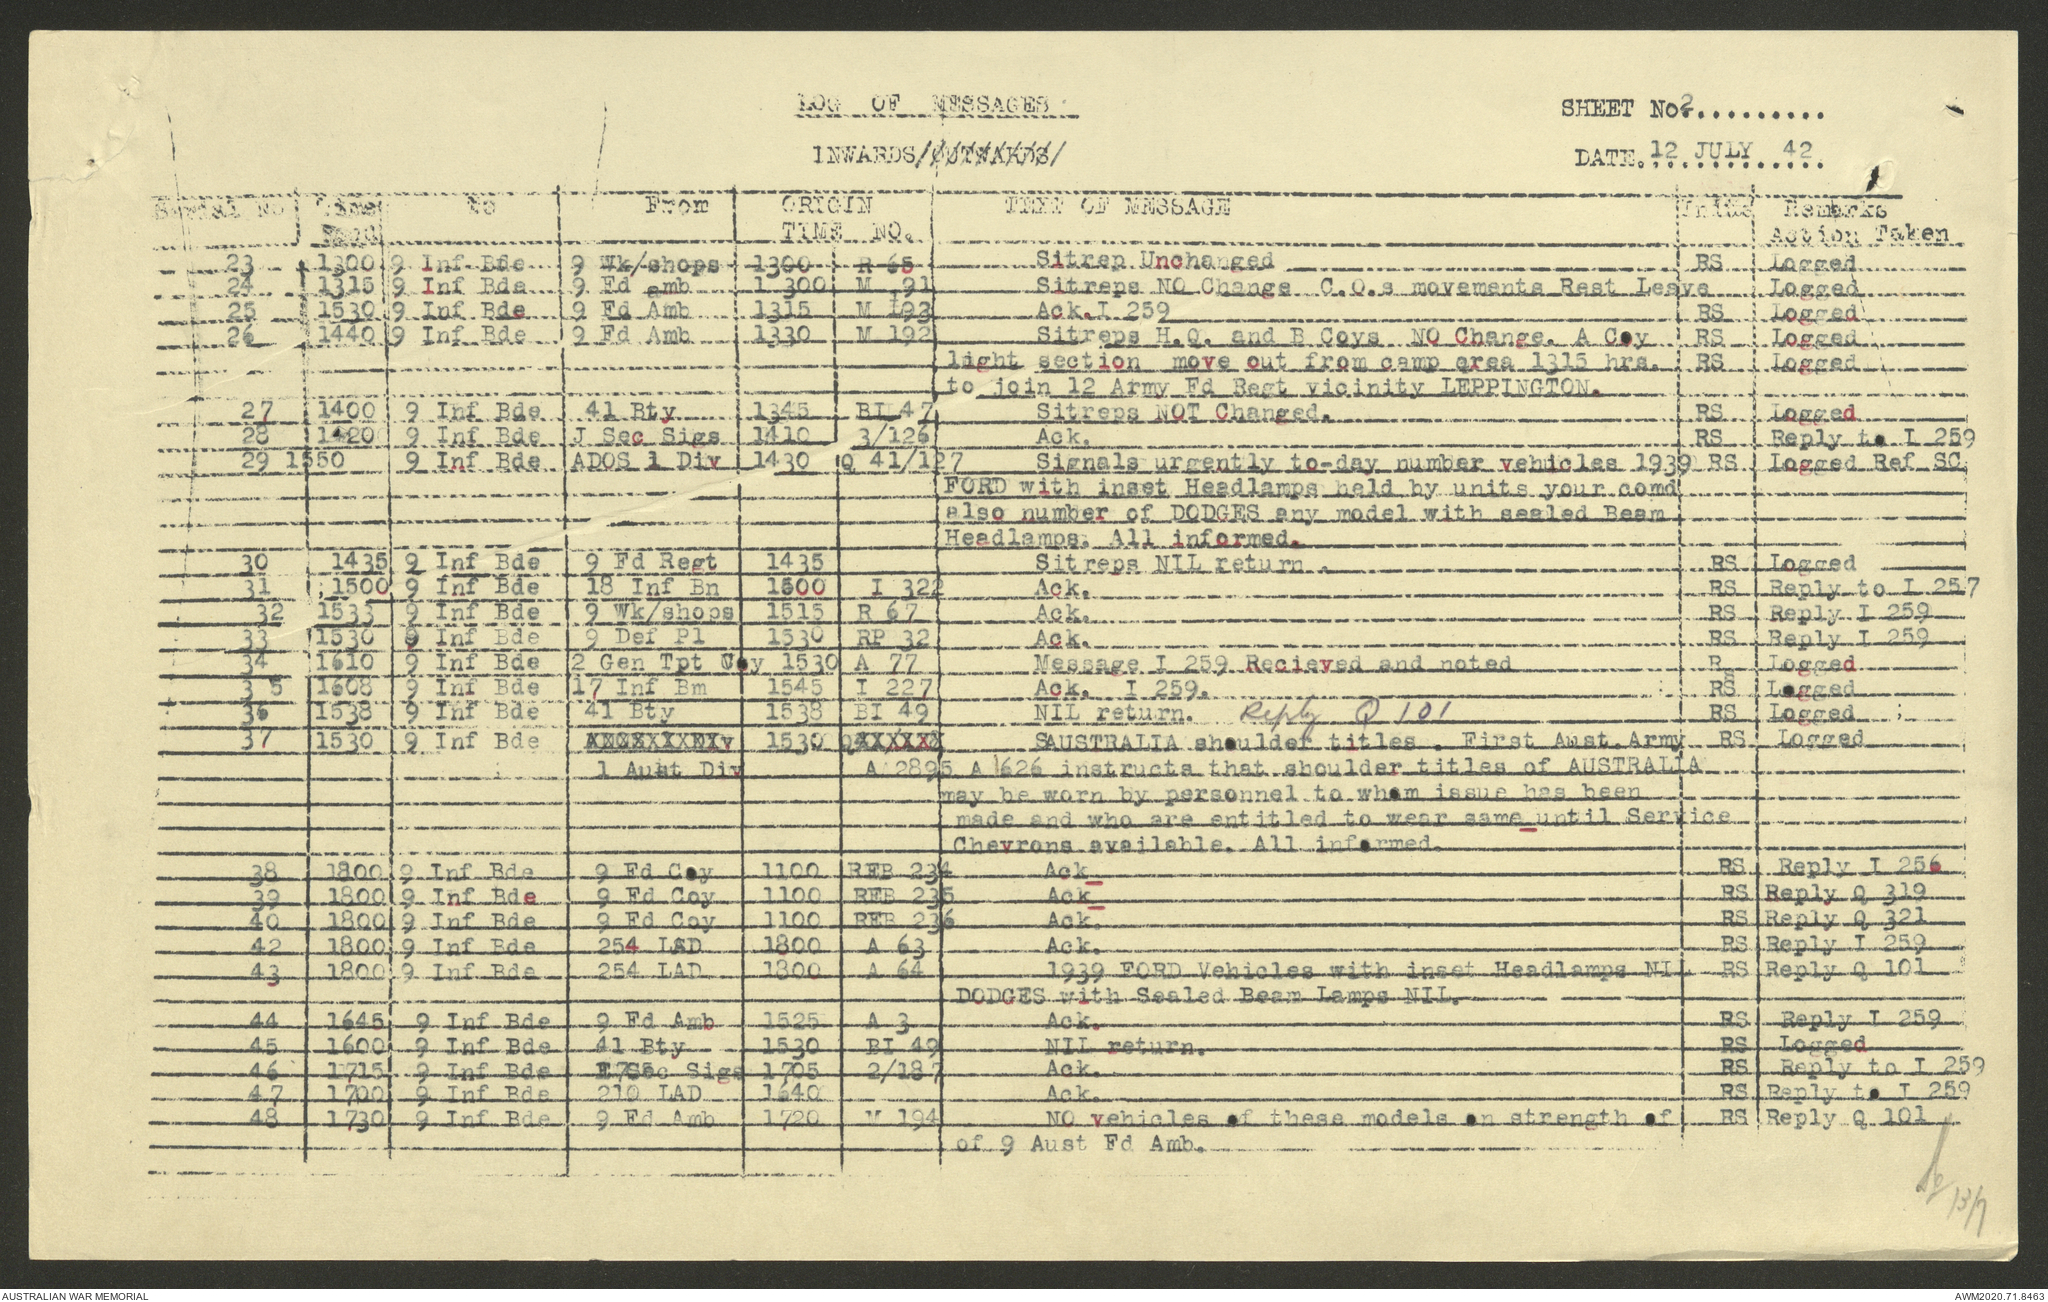 LOG OF MESSAGES
SHEET No 2..........
INWARDS/OUTWARDS/
DATE. 12 JULY 42
Serial No Time To From ORIGIN TEXT OF MESSAGE Remarks
TIME NO. Action Taken
23 1300 9 Inf Bde 9 Wk/shops 1300 R 65 Sitrep Unchanged RS Logged
24 1315 9 Inf Bde 9 Fd amb 1 300 M 191 Sitreps NO Change C.O.s movements Rest Leave Logged
25 1530 9 Inf Bde 9 Fd Amb 1315 M 193 Ack.I 259 RS Logged
26 1440 9 Inf Bde 9 Fd Amb 1330 M 192 Sitreps H.Q. and B Coys NO Change. A Coy RS Logged
light section move out from camp area 1315 hrs. RS Logged
to join 12 Army Fd Regt vicinity LEPPINGTON.
27 1400 9 Inf Bde 41 Bty 1345 BI 47 Sitreps NOT Changed. RS Logged
28 1420 9 Inf Bde J Sec Sigs 1410 3/126 Ack. RS Reply to I 259
29 1550 9 Inf Bde ADOS 1 Div 1430 Q 41/127 Signals urgently to-day number vehicles 1939 RS Logged Ref SC
FORD with inset Headlamps held by units your comd
also number of DODGES any model with sealed Beam
Headlamps. All informed.
30 1435 9 Inf Bde 9 Fd Regt 1435 Sitreps NIL return . RS Logged
31 1500 9 Inf Bde 18 Inf Bn 1500 I 322 Ack. RS Reply to I 257
32 1533 9 Inf Bde 9 Wk/shops 1515 R 67 Ack. RS Reply I 259
33 1530 9 Inf Bde 9 Def Pl 1530 RP 32 Ack. RS Reply I 259
34 1610 9 Inf Bde 2 Gen Tpt Coy 1530 A 77 Message I 259 Recieved and noted Rs Logged
35 1608 9 Inf Bde 17 Inf Bm 1545 I 227 Ack. I 259. RS Logged
36 1538 9 Inf Bde 41 Bty 1538 BI 49 NIL return. Reply Q 101 RS Logged
37 1530 9 Inf Bde 1530 QXXXXXX SAUSTRALIA shoulder titles . First Aust.Army RS Logged
1 Aust Div A 2895 A 1626 instructs that shoulder titles of AUSTRALIA
may be worn by personnel to whom issue has been
made and who are entitled to wear same until Service
Chevrons available. All informed.
38 1800 9 Inf Bde 9 Fd Coy 1100 REB 234 Ack RS Reply I 256
39 1800 9 Inf Bde 9 Fd Coy 1100 REB 235 Ack RS Reply Q 319
40 1800 9 Inf Bde 9 Fd Coy 1100 REB 236 Ack. RS Reply Q 321
42 1800 9 Inf Bde 254 LAD 1800 A 63 Ack. RS Reply I 259
43 1800 9 Inf Bde 254 LAD 1800 A 64 1939 FORD Vehicles with inset Headlamps NIL RS Reply Q 101
DODGES with Sealed Beam Lamps NIL.
44 1645 9 Inf Bde 9 Fd Amb 1525 A 3 Ack. RS Reply I 259
45 1600 9 Inf Bde 41 Bty 1530 BI 49 NIL return. RS Logged
46 1715 9 Inf Bde Sec Sigs 1705 2/187 Ack. RS Reply to I 259
47 1700 9 Inf Bde 210 LAD 1640 Ack. RS Reply to I 259
48 1730 9 Inf Bde 9 Fd Amb 1720 M 194 NO vehicles of these models on strength of RS Reply Q 101
of 9 Aust Fd Amb.
13/7
AUSTRALIAN WAR MEMORIAL
AWM2020.71.8463